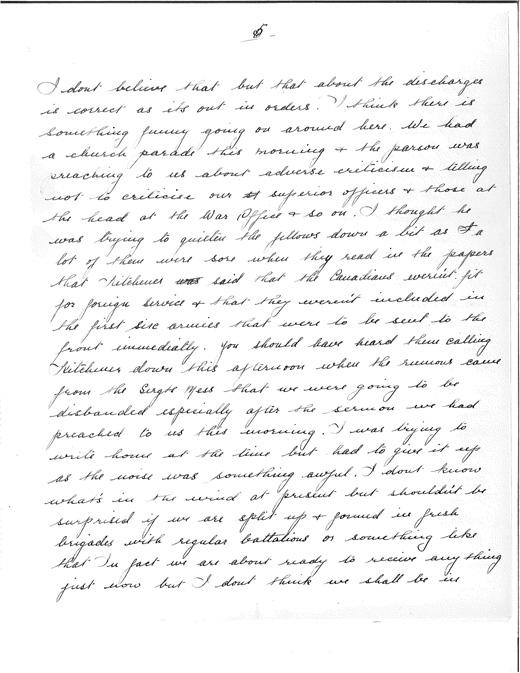 5
I dont believe that but that about the discharges
is correct as its out in orders. I think there is
something funny going on around here. We had
a church parade this morning & the parson was
preaching to us about adverse criticism & telling
not to criticise our superior officers & those at
the head at the War Office & so on. I thought he
was trying to quieten the fellows down a bit as a
lot of them were sore when they read in the papers
that Kitchener was said that the Canadians werent fit
for foreign service & that they weren't included in
the first six armies that were to be sent to the
front immediatly. you should have heard them calling
Kitchener down this afternoon when the rumour came
from the Sergts Mess that we were going to be
disbanded especially after the sermon we had
preached to us this morning. I was trying to
write home at the time but had to give it up
as the noise was something awful. I dont know
what's in the wind at present but shouldn't be
surprised if we are split up & formed in fresh
brigades with regular battalions or something like
that In fact we are about ready to receive any thing
just now but I dont think we shall be in